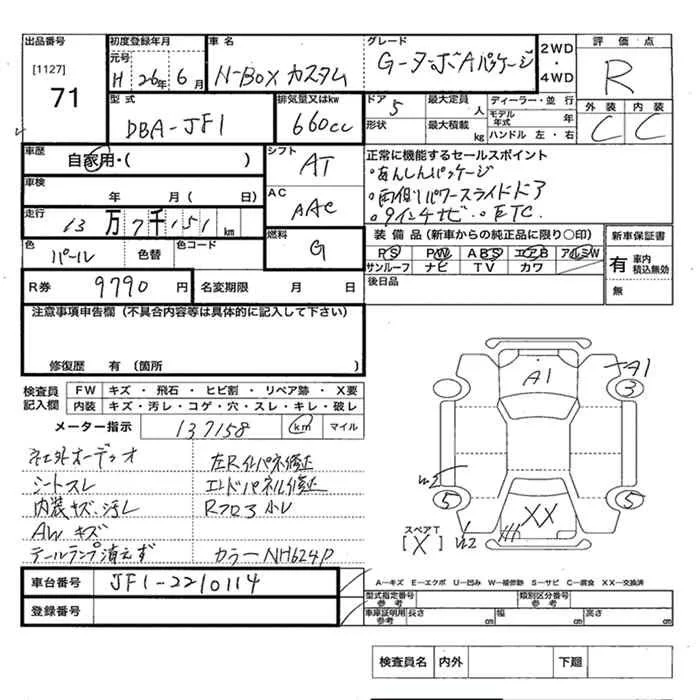 出品番号 初度登録年月 車名 グレード 2WD・4WD 評価点
[1127] 元号 H 26年 6月 N-BOX カスタム G-ターボAパッケージ R
71
型式 排気量又はkw ドア 5 最大定員 人 ディーラー・並行 外装 内装
DBA-JF1 660cc 形状 最大積載 kg モデル年式 年 C C
ハンドル 左・右
車歴 自家用・( ) シフト AT 正常に機能するセールスポイント
・あんしんパッケージ
車検 年 月 ( 日) AC AAC ・両側パワースライドドア
走行 13万7千151 km ・9インチナビ ・ETC.
色 パール 色替 色コード 燃料 G 装備品(新車からの純正品に限り○印) 新車保証書
PS PW ABS エアB アルミW 有 車内積込無効
R券 9790円 名変期限 月 日 サンルーフ ナビ TV カワ 無
後日品
注意事項申告欄(不具合内容等は具体的に記入して下さい)
修復歴 有(箇所 )
検査員記入欄 FW キズ・飛石・ヒビ割・リペア跡・X要
内装 キズ・汚レ・コゲ・穴・スレ・キレ・破レ
メーター指示 137158 km マイル
社外オーディオ 左Rインパネ修正
シートスレ エンドパネル修正
内装キズ.汚レ Rフロア
AW キズ
テールランプ消えず カラーNH624P
A1 A1 3
W3 5 5
XX
スペアT [X] W2
車台番号 JF1-2210114
登録番号
A―キズ E―エクボ U―凹み W―補修跡 S―サビ C―腐食 XX―交換済
型式指定番号 参考 類別区分番号 参考
車庫証明用 参考 長さ cm 幅 cm 高さ cm
検査員名 内外 下廻